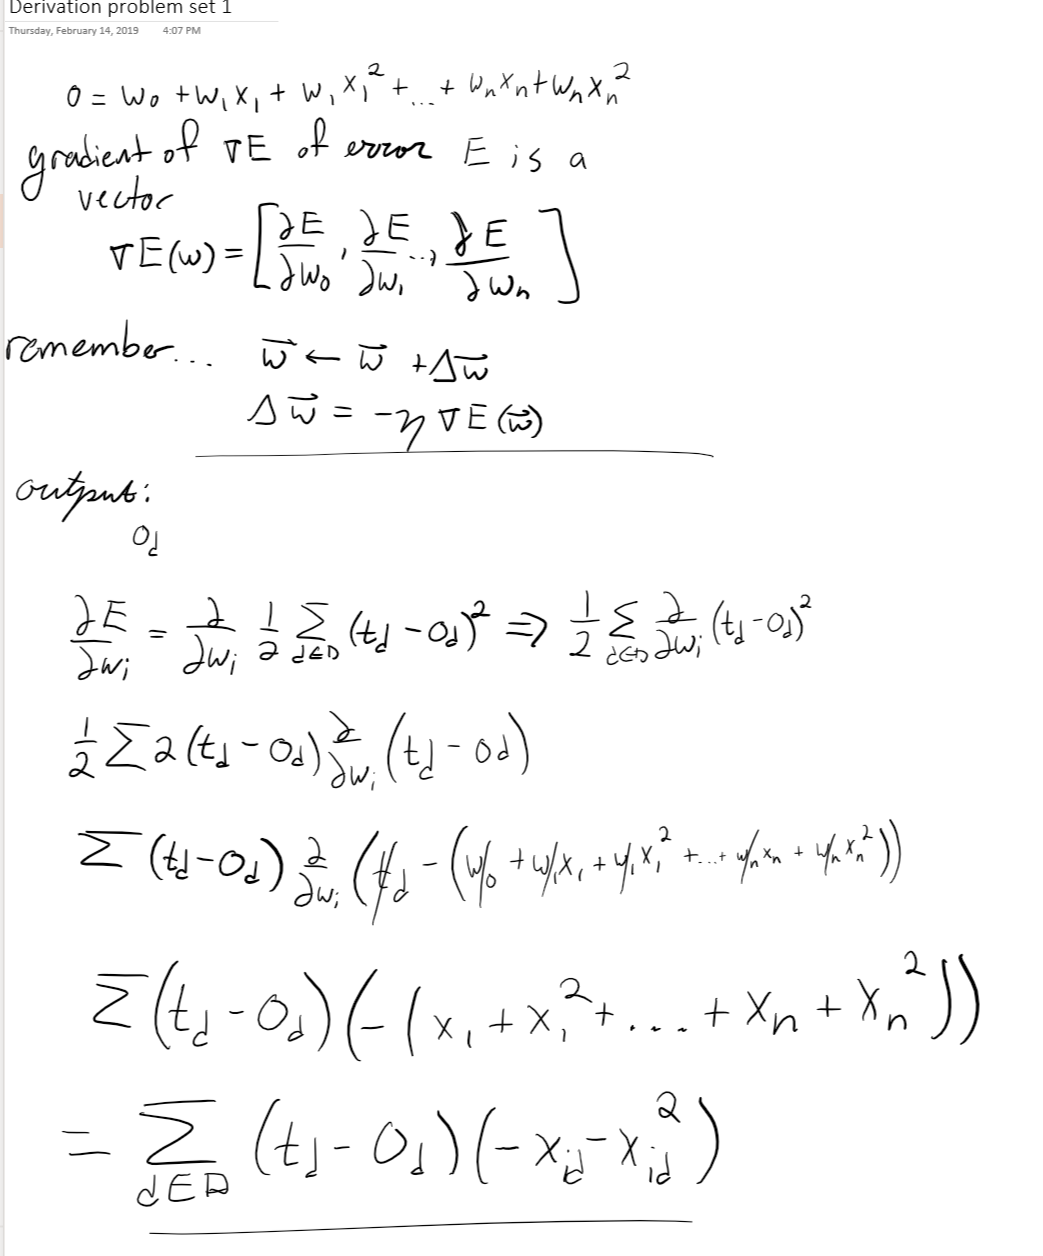 Derivation problem set 1
Thursday, February 14, 2019 4:07 PM
o = w₀ + w₁x₁ + w₁x₁² + ... + wₙxₙ + wₙxₙ²
gradient of ∇E of error E is a
vector
∇E(w) = [∂E/∂w₀, ∂E/∂w₁, ..., ∂E/∂wₙ]
remember... w⃗ ← w⃗ + Δw⃗
Δw⃗ = -η∇E(w⃗)
output:
o_d
∂E/∂wᵢ = ∂/∂wᵢ 1/2 Σ_{d∈D} (t_d - o_d)² ⇒ 1/2 Σ_{d∈D} ∂/∂wᵢ (t_d - o_d)²
1/2 Σ 2(t_d - o_d) ∂/∂wᵢ (t_d - o_d)
Σ (t_d - o_d) ∂/∂wᵢ (t_d - (w₀ + w₁x₁ + w₁x₁² + ... + wₙxₙ + wₙxₙ²))
Σ(t_d - o_d)(-(x₁ + x₁² + .... + xₙ + xₙ²))
= Σ_{d∈D} (t_d - o_d)(-x_{id} - x_{id}²)